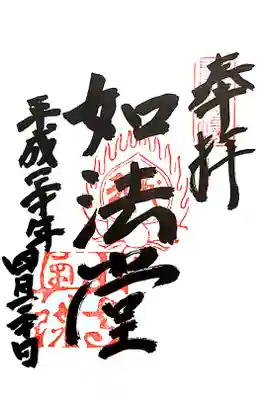 奉拝
如法堂
平成二十年四月二十日